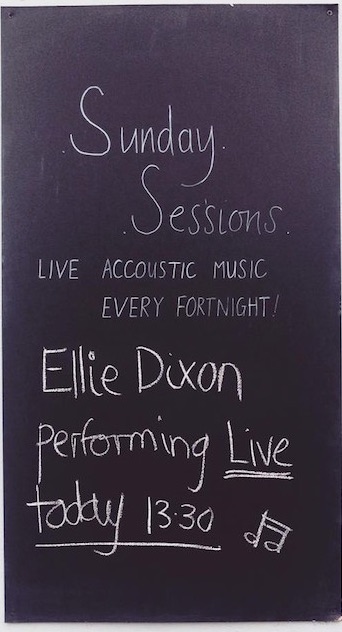 Sunday.
Sessions.
LIVE ACCOUSTIC MUSIC
EVERY FORTNIGHT!
Ellie Dixon
performing Live
today 13.30